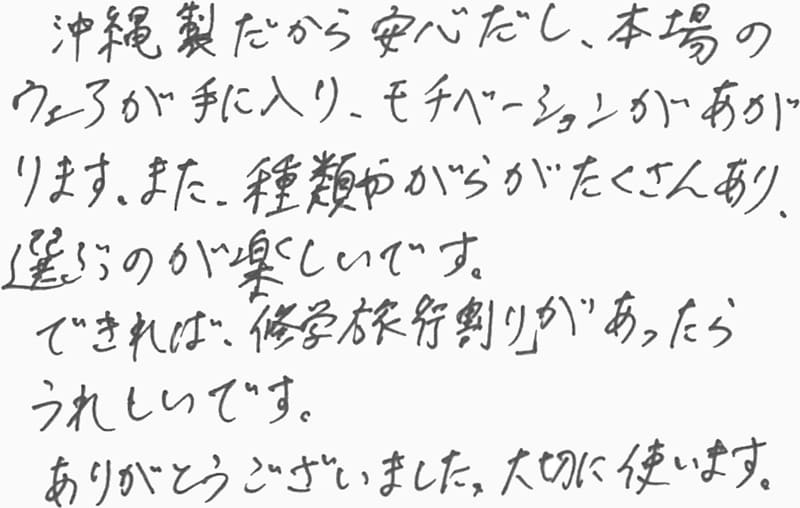 沖縄製だから安心だし、本場の
ウェアが手に入り、モチベーションがあが
ります。また、種類やがらがたくさんあり、
選ぶのが楽しいです。
できれば、修学旅行割り」があったら
うれしいです。
ありがとうございました。大切に使います。